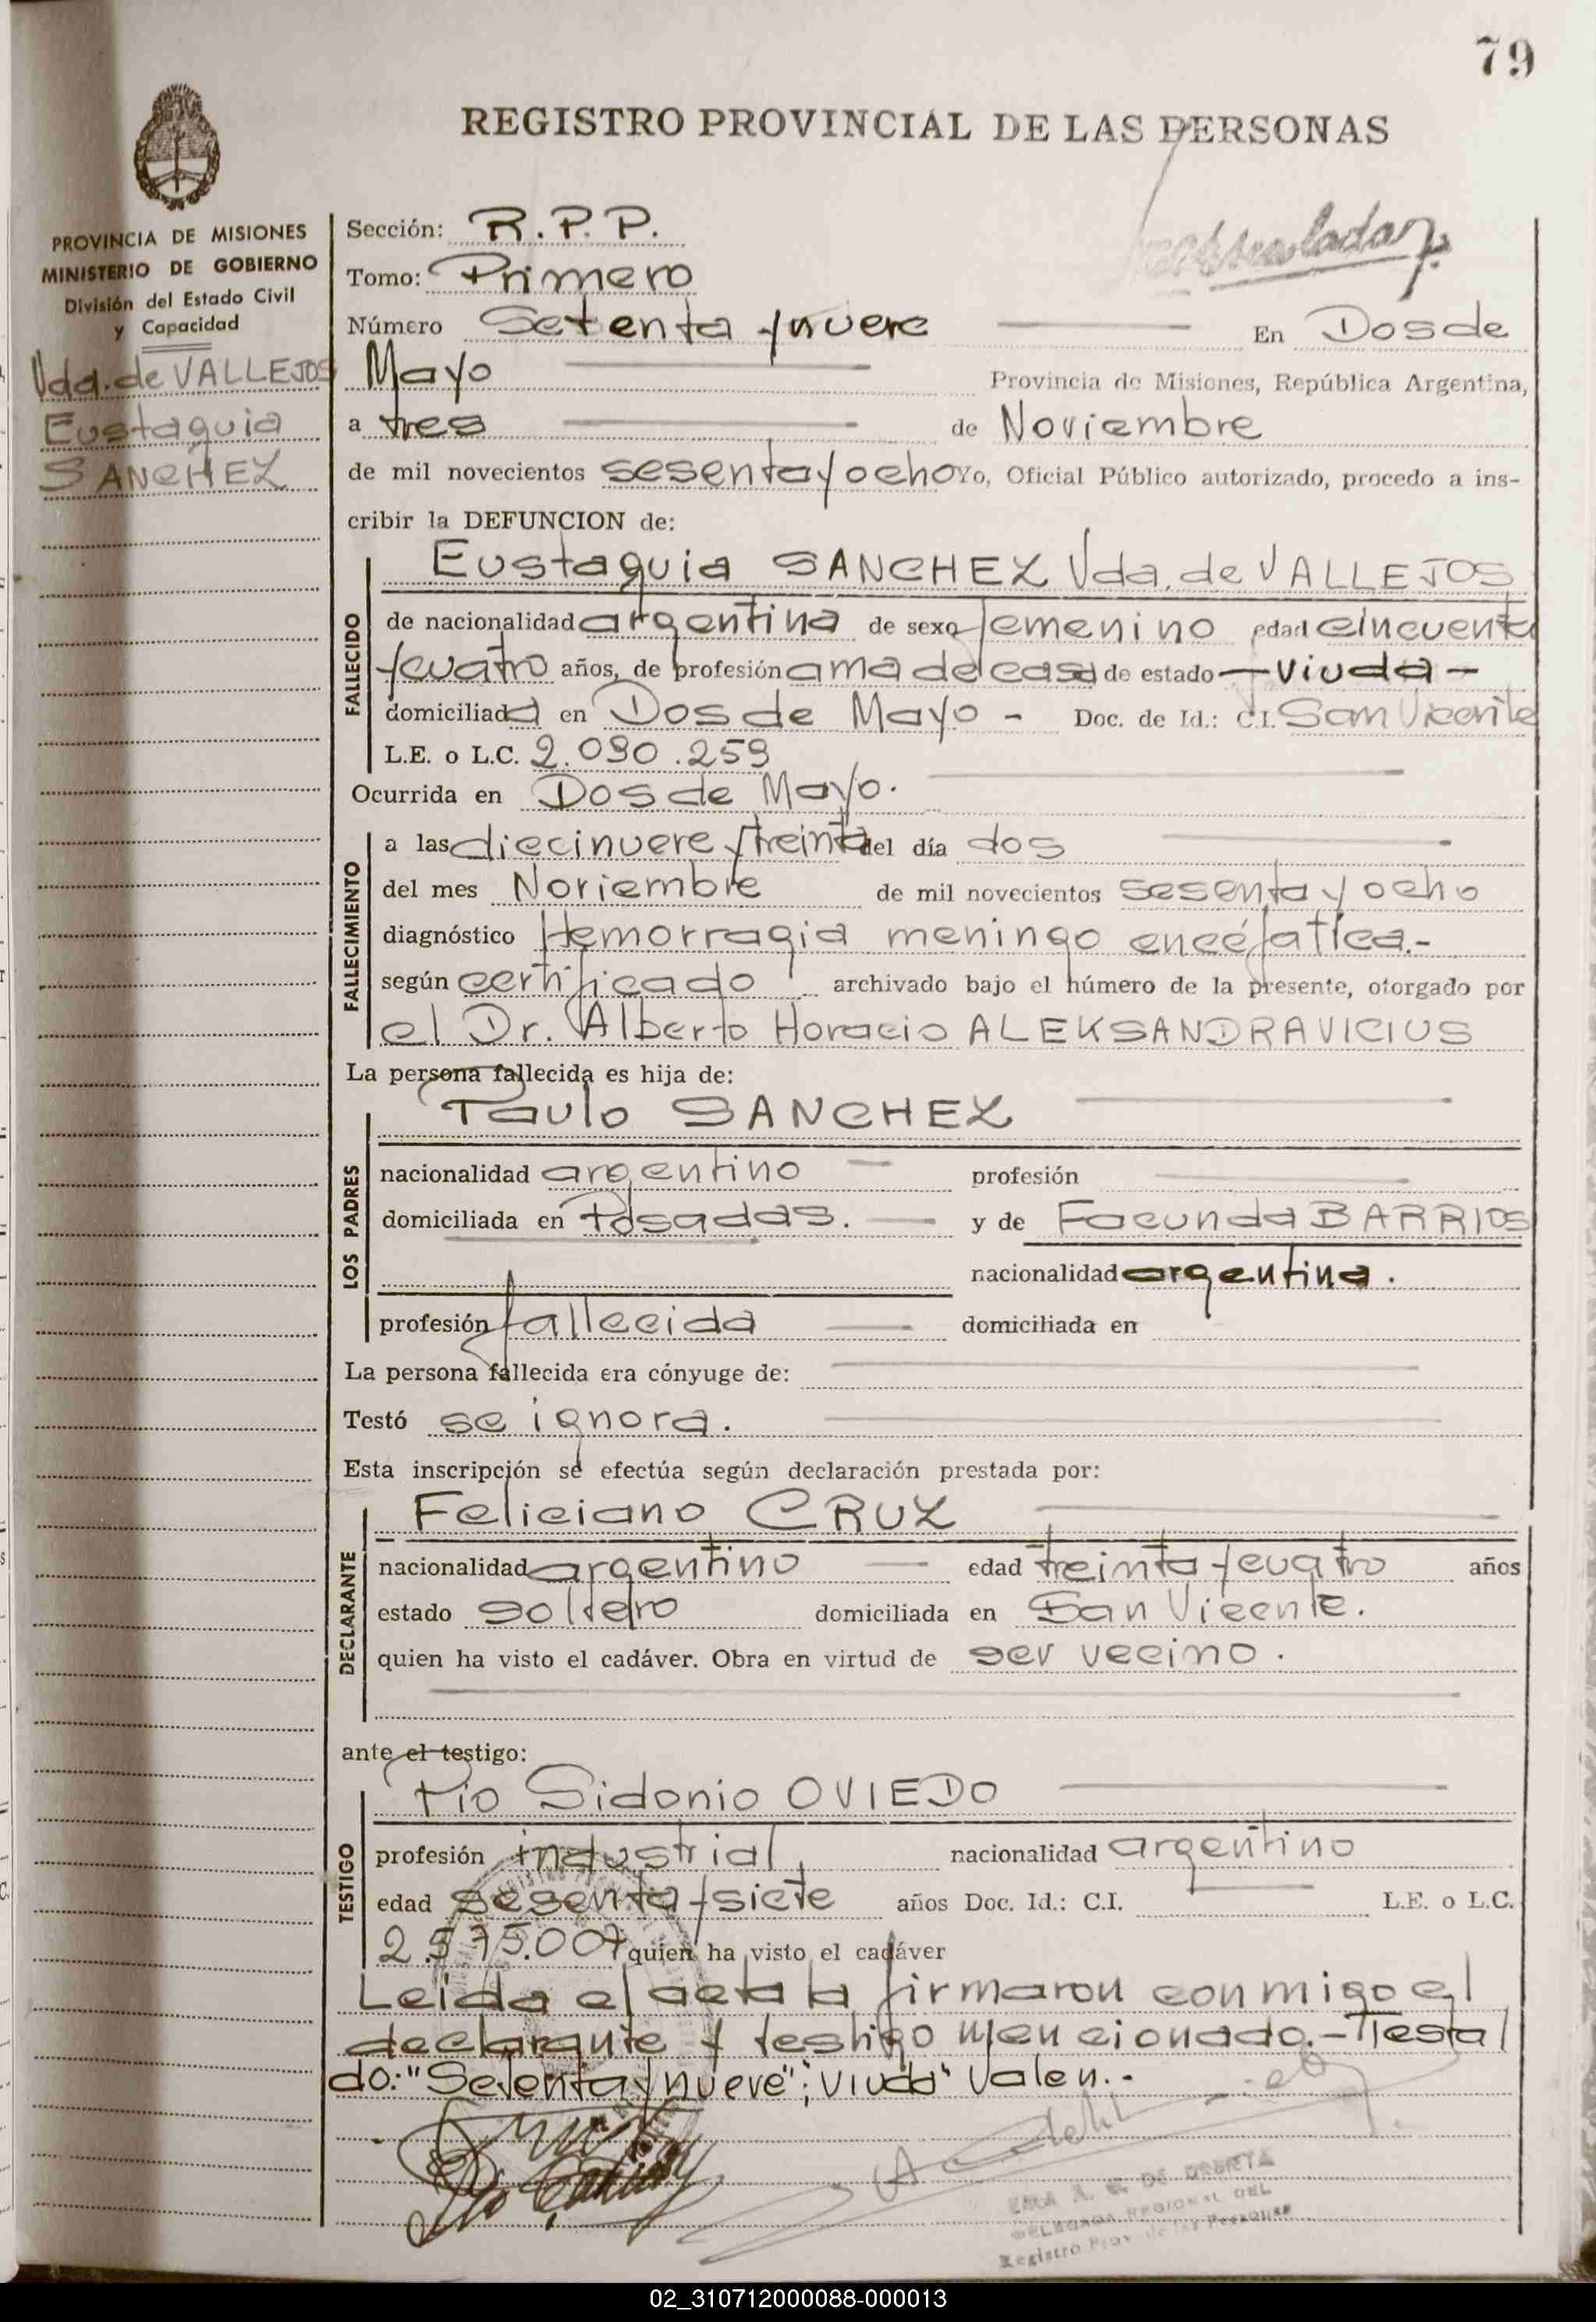 79
REGISTRO PROVINCIAL DE LAS PERSONAS
PROVINCIA DE MISIONES
MINISTERIO DE GOBIERNO
División del Estado Civil
y Capacidad
Vda. de VALLEJOS
Eustaquia
SANCHEZ
Sección: R.P.P.
Tomo: Primero
Número Setenta y nueve En Dos de
Mayo Provincia de Misiones, República Argentina,
a tres de Noviembre
de mil novecientos sesenta y ocho Yo, Oficial Público autorizado, procedo a ins-
cribir la DEFUNCION de:
Eustaquia SANCHEZ Vda. de VALLEJOS
FALLECIDO
de nacionalidad argentina de sexo femenino edad cincuenta
y cuatro años, de profesión ama de casa de estado - viuda -
domiciliada en Dos de Mayo - Doc. de Id.: C.I. San Vicente
L.E. o L.C. 2.090.259
Ocurrida en Dos de Mayo.
FALLECIMIENTO
a las diecinueve y treinta del día dos
del mes Noviembre de mil novecientos sesenta y ocho
diagnóstico Hemorragia meningo encéfatica.-
según certificado archivado bajo el número de la presente, otorgado por
el Dr. Alberto Horacio ALEKSANDRAVICIUS
La persona fallecida es hija de:
Paulo SANCHEZ
LOS PADRES
nacionalidad argentino profesión
domiciliada en Posadas. y de Facunda BARRIOS
nacionalidad argentina.
profesión fallecida domiciliada en
La persona fallecida era cónyuge de:
Testó se ignora.
Esta inscripción se efectúa según declaración prestada por:
Feliciano CRUZ
DECLARANTE
nacionalidad argentino edad treinta y cuatro años
estado soltero domiciliada en San Vicente.
quien ha visto el cadáver. Obra en virtud de ser vecino.
ante el testigo:
Pío Sidonio OVIEDO
TESTIGO
profesión industrial nacionalidad argentino
edad sesenta y siete años Doc. Id.: C.I. L.E. o L.C.
2.575.007 quien ha visto el cadáver
Leida el acta la firmaron conmigo el
declarante y testigo mencionado.- Testa
do: "Setenta y nueve"; viuda" Valen.-
DELEGADA REGIONAL DEL
Registro Prov. de las Personas
02_310712000088-000013